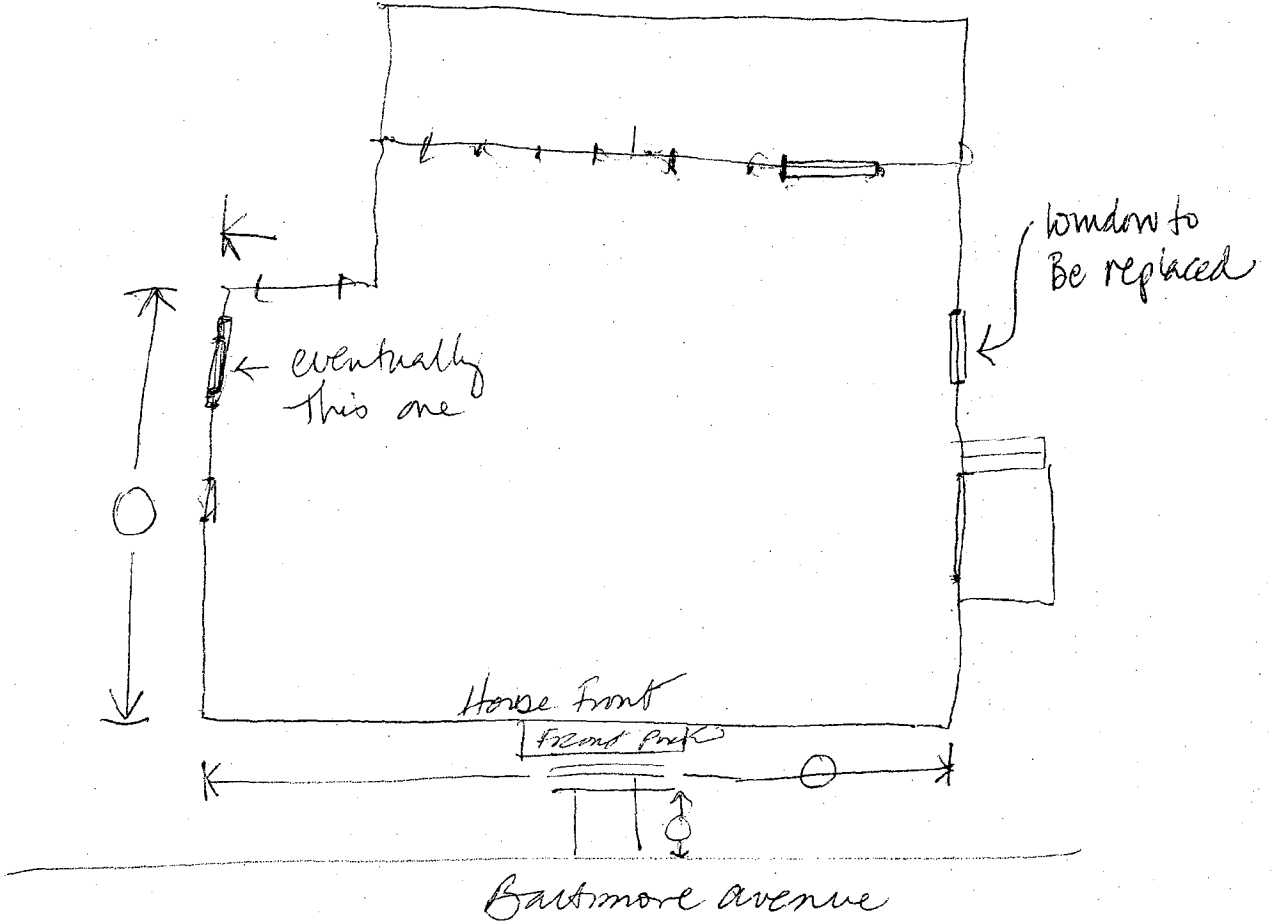 window to
Be replaced
← eventually
This one
House Front
Front
Baltimore avenue